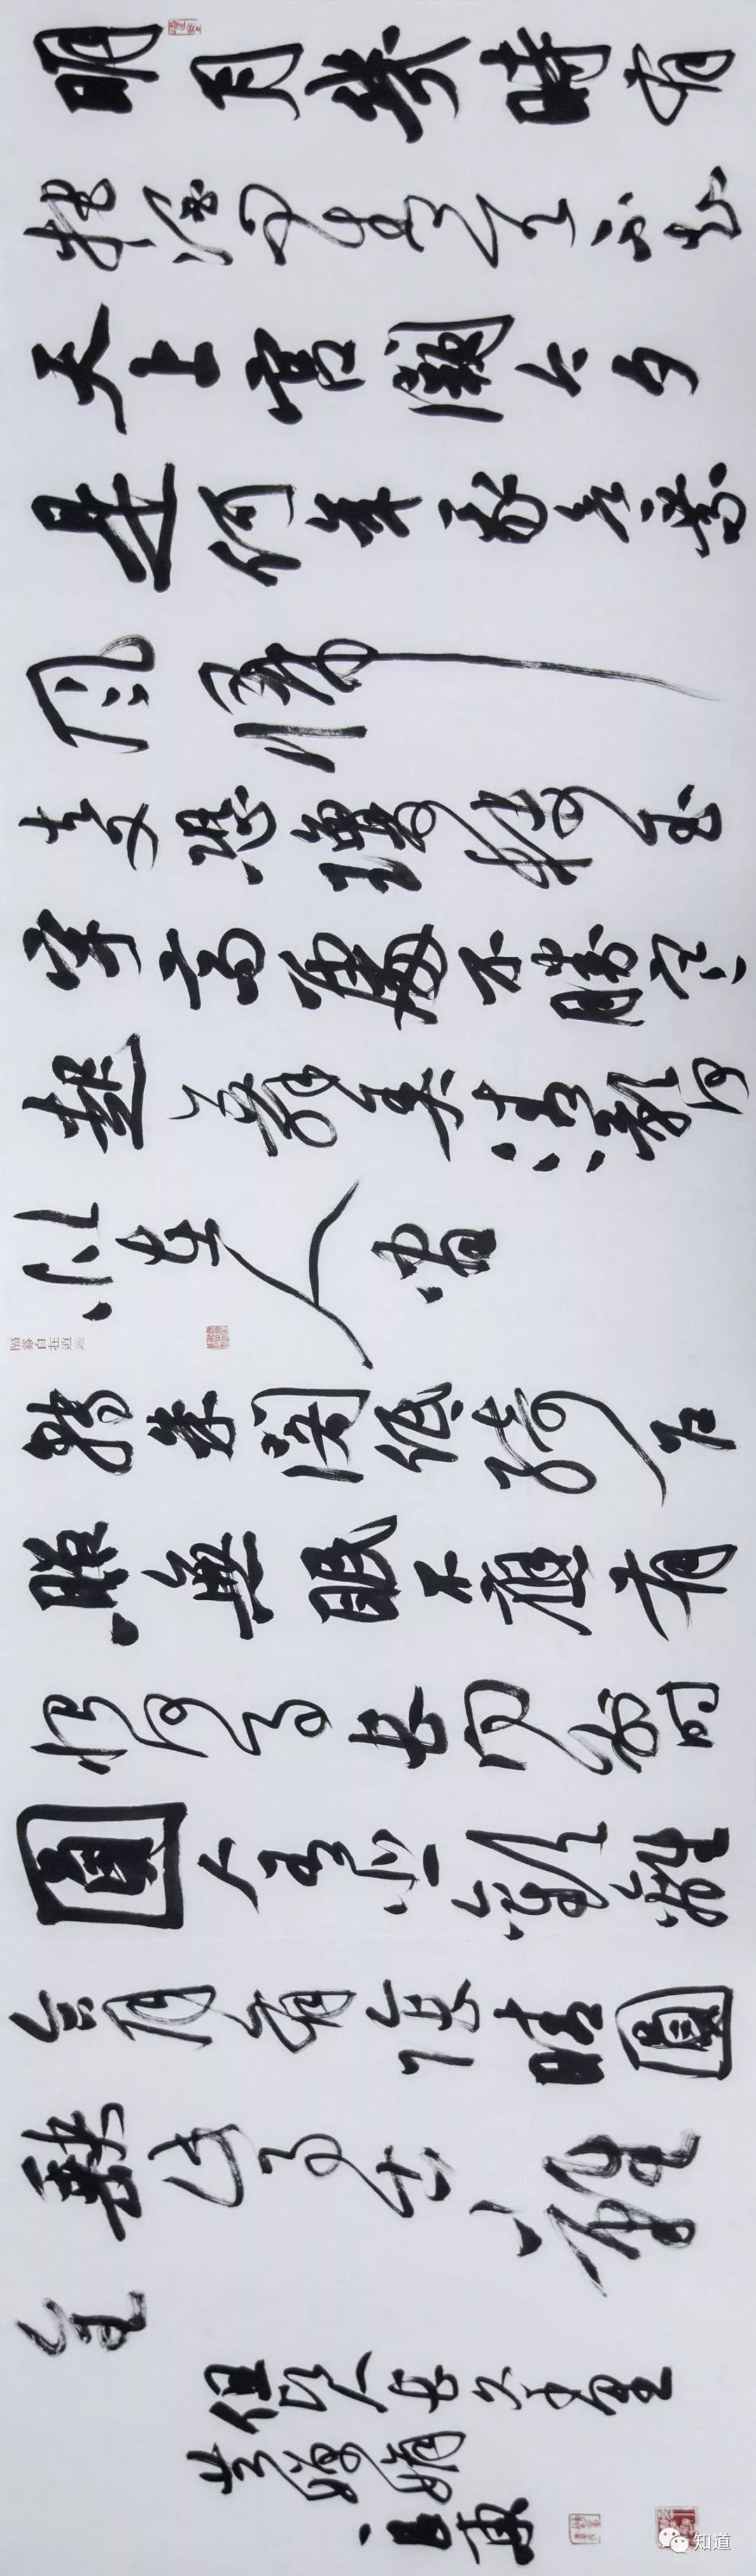 明月幾時有
把酒問青天不知
天上宮闕今夕
是何年我欲乘
風歸
去又恐瓊樓玉
宇高處不勝寒
起舞弄清影何
似在人間
轉朱閣低綺户
照無眠不應有
恨何事長向别時
圓人有悲歡離
合月有陰晴圓
缺此事古難
全
但願人長久千里
共嬋娟
知道